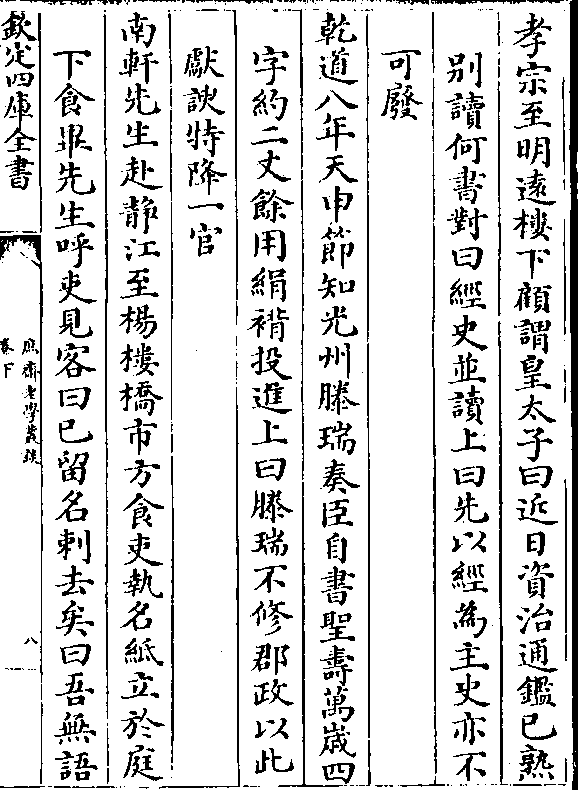 孝宗至明逺樓下顧謂皇太子曰近日資治通鑑已熟
别讀何書對曰經史並讀上曰先以經為主史亦不
可廢
乾道八年天申節知光州滕瑞奏臣自書聖夀萬歳四
字約二丈餘用絹褙投進上曰滕瑞不修郡政以此
獻諛特降一官
南軒先生赴静江至楊樓橋市方食吏執名紙立於庭
下食畢先生呼吏見客曰已留名刺去矣曰吾無語
欽定四庫全書
庶齋老學叢談
卷下
八